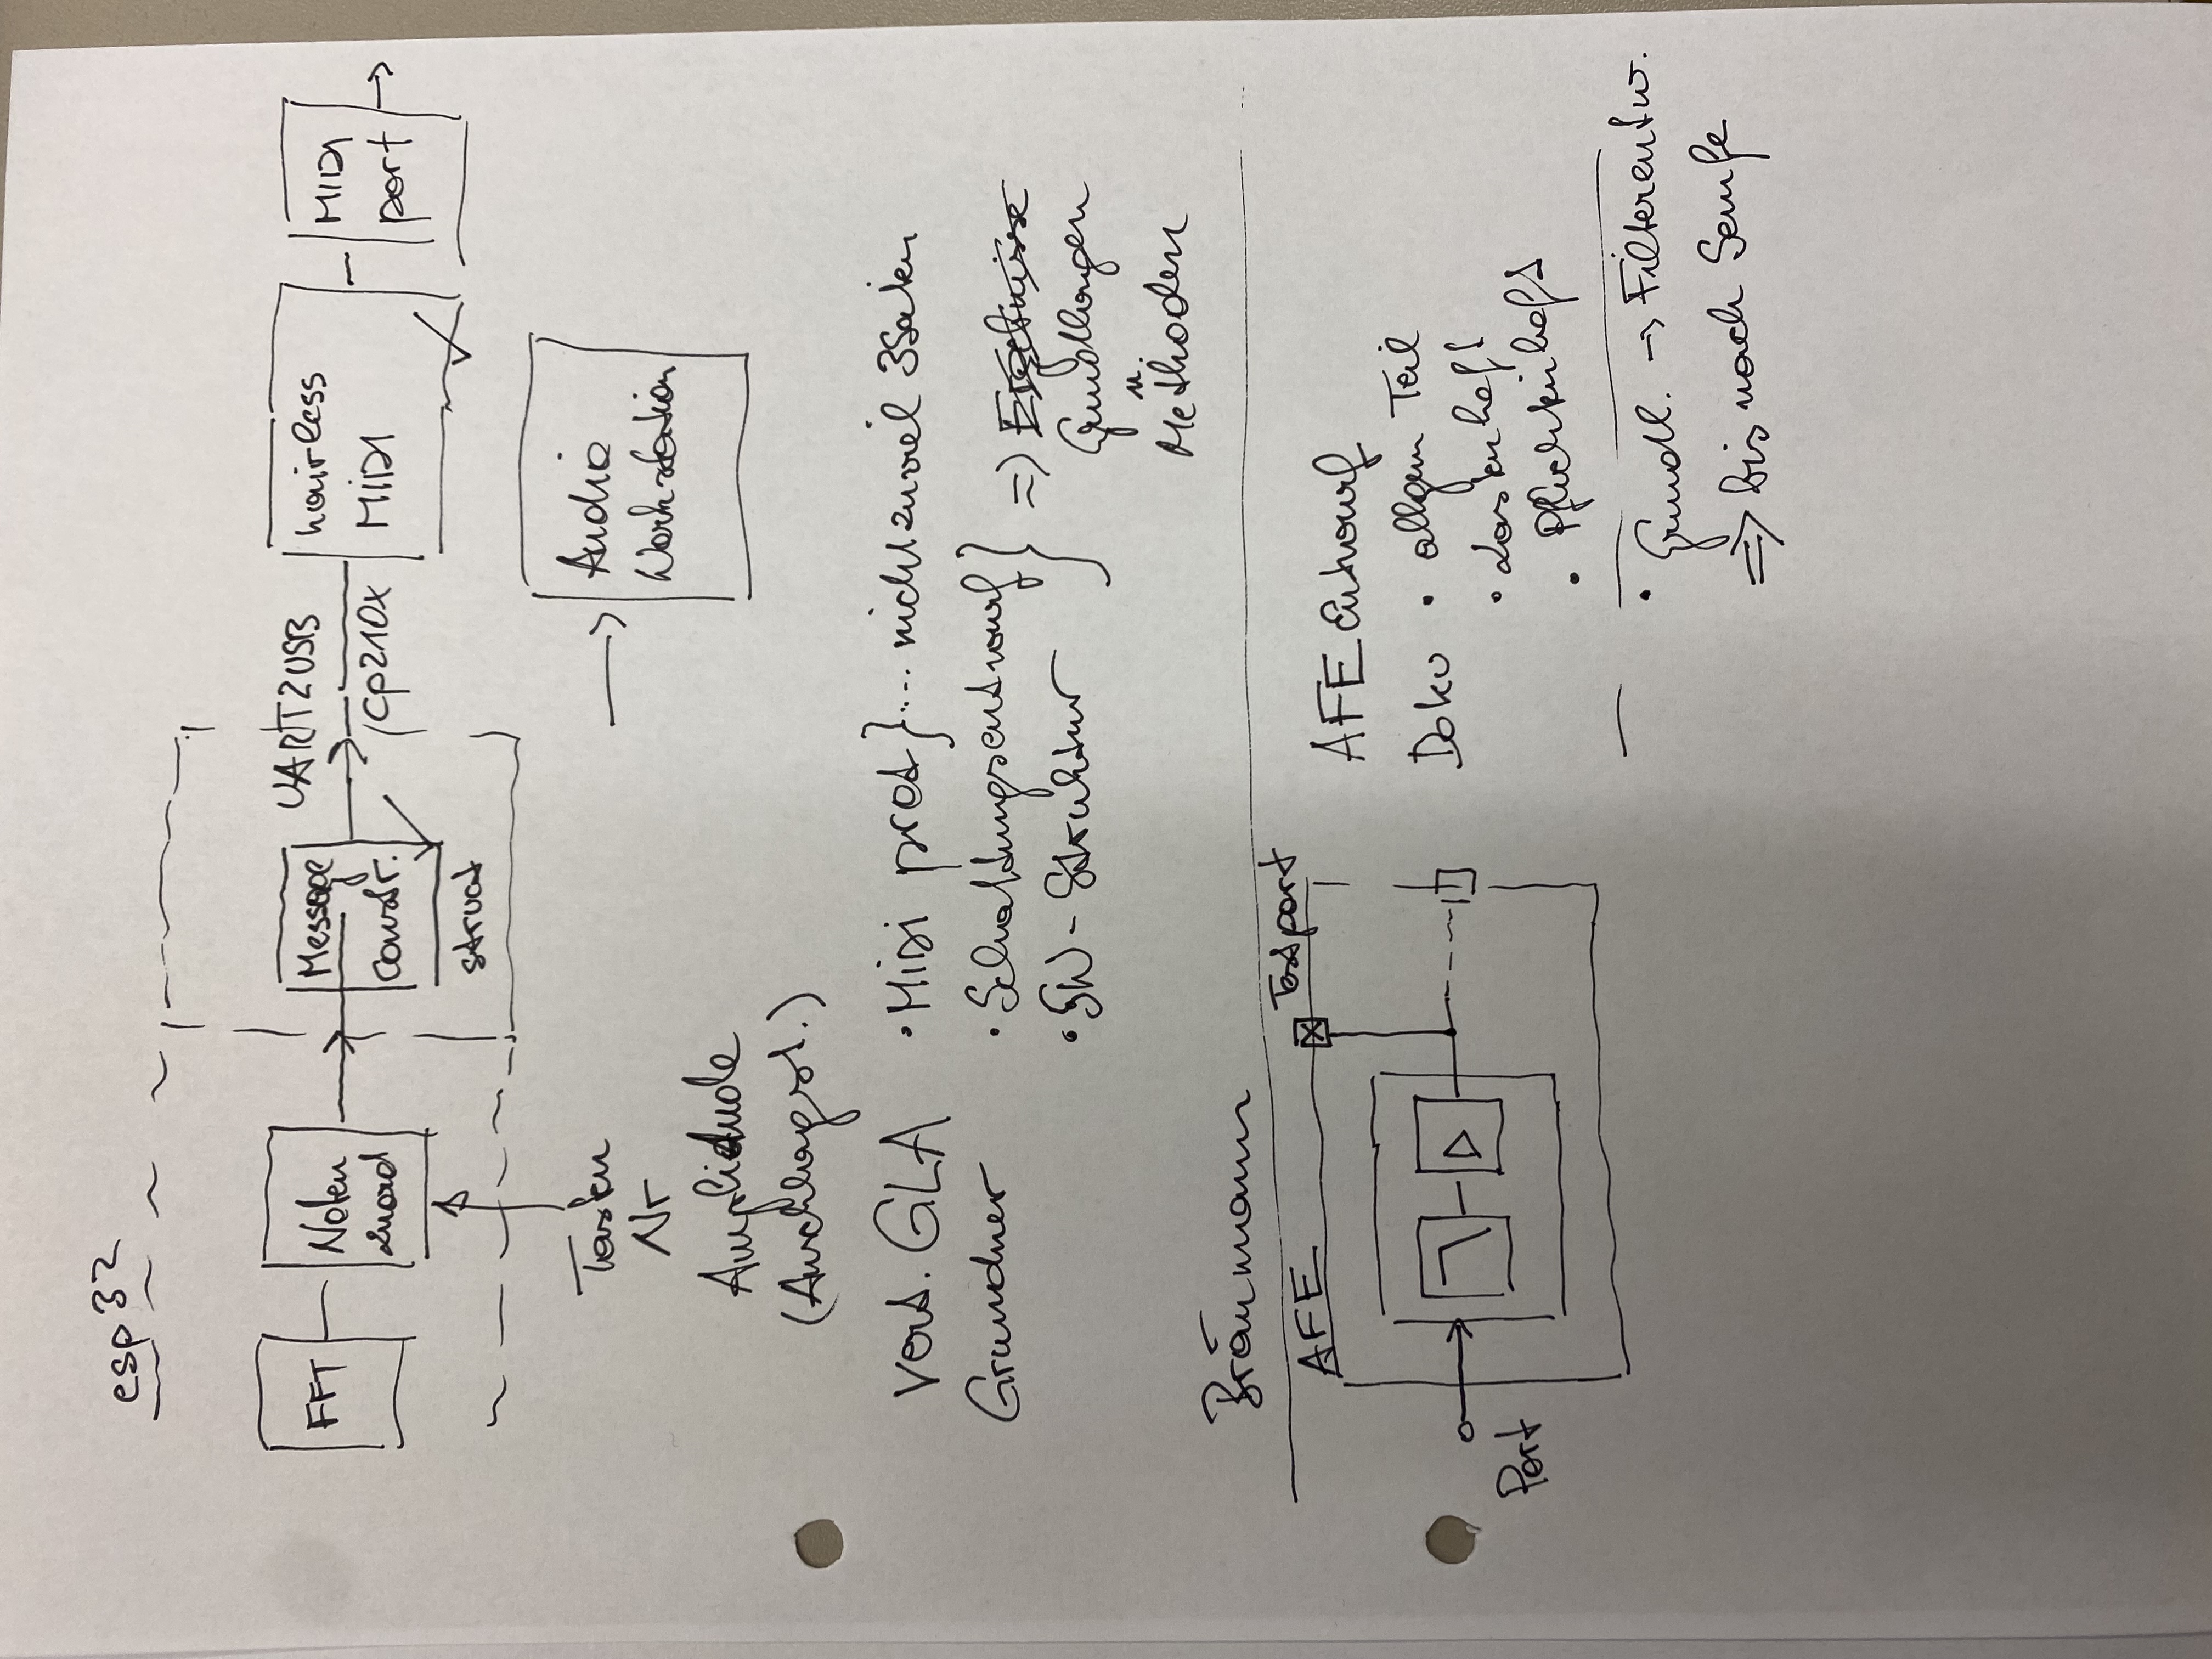 esp32
FFT
Noten
zuord
Message
constr.
struct
UART2USB
cp210x
hairless
MIDI
MIDI
port
Tasten
Nr
Amplidude
(Anschlagst.)
Audio
Workstation
Vert. GLA
Grundner
• MiDi prot } .... nicht zu viel 3Seiten
• Schaltungsentwurf
• SW - Struktur
=> Ergebnisse
Grundlagen
u.
Methoden
Bräunmann
AFE
Testport
Port
AFE Entwurf
Doku • allgem Teil
• Lastenheft
• Pflichtenheft
• Grundl. → Filterentw.
=> bis nach Semfe